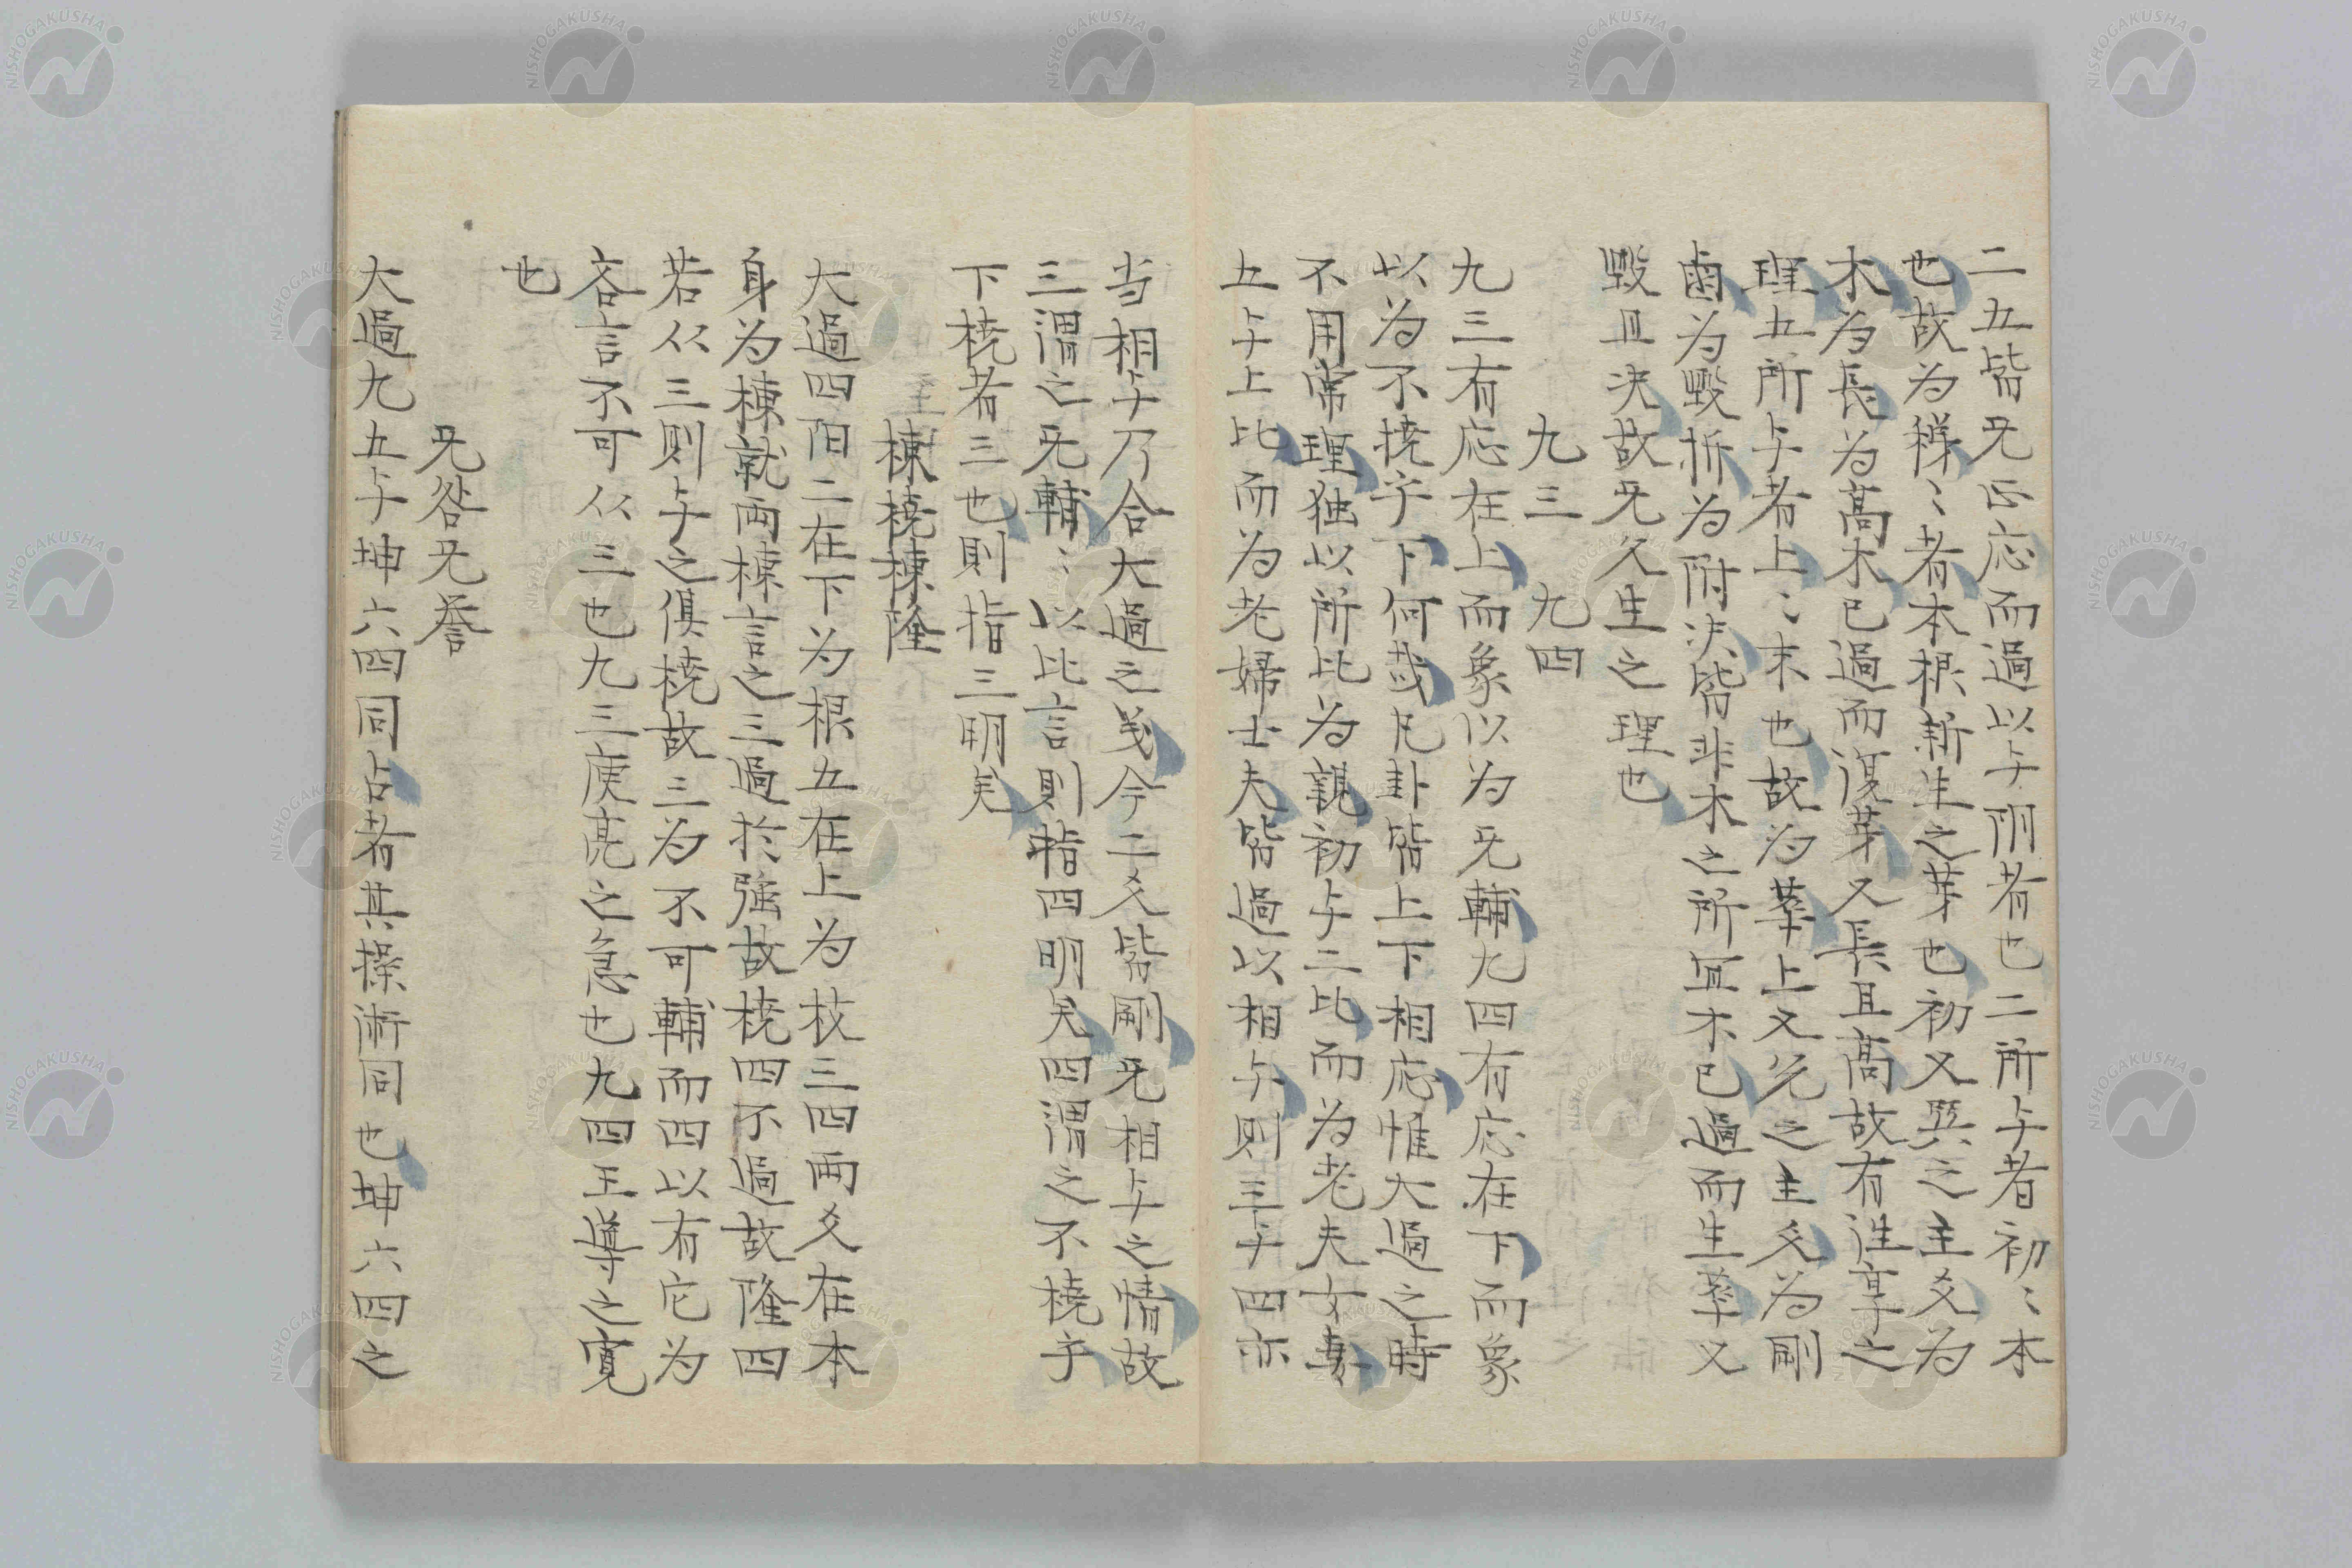 二五皆旡正応而過以与剛者也二所与者初〻本
也故為稊〻者木根新生之芽也初又巽之主爻為
木為長為高木已過而復芽又長且高故有往享之
理五所与者上〻末也故為華上又兌之主爻為剛
鹵為毀折為附決皆非木之所宜木已過而生華又
毀且決故旡久生之理也
九三　九四
九三有応在上而象以為旡輔九四有応在下而象
以為不撓乎下何哉凡卦皆上下相応惟大過之時
不用常理独以所比為親初与二比而為老夫女妻
五与上比而為老婦士夫皆過以相与則三与四亦
当相与乃合大過之義今二爻皆剛旡相与之情故
三謂之旡輔〻以比言則指四明矣四謂之不橈乎
下橈者三也則指三明矣
棟橈棟隆
大過四阳二在下為根五在上為枝三四両爻在本
身為棟就両棟言之三過於強故橈四不過故隆四
若从三則与之俱橈故三為不可輔而四以有它為
吝言不可从三也九三庾亮之急也九四王導之寛
也
旡咎旡誉
大過九五与坤六四同占者其操術同也坤六四之